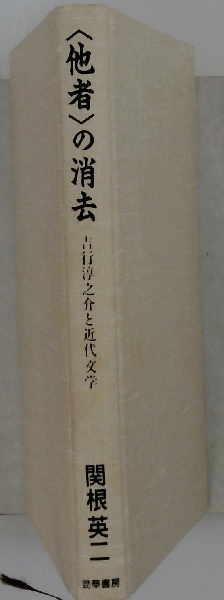 〈他者〉の消去
吉行淳之介と近代文学
関根英二
勁草書房